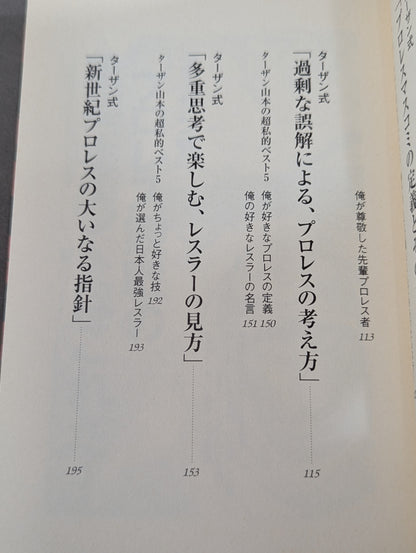 俺が尊敬した先輩プロレス者 113
ターザン式
「過剰な誤解による、プロレスの考え方」 115
ターザン山本の超私的ベスト5 俺が好きなプロレスの定義 150
俺の好きなレスラーの名言 151
ターザン式
「多重思考で楽しむ、レスラーの見方」 153
ターザン山本の超私的ベスト5 俺がちょっと好きな技 192
俺が選んだ日本人最強レスラー 193
ターザン式
「新世紀プロレスの大いなる指針」 195